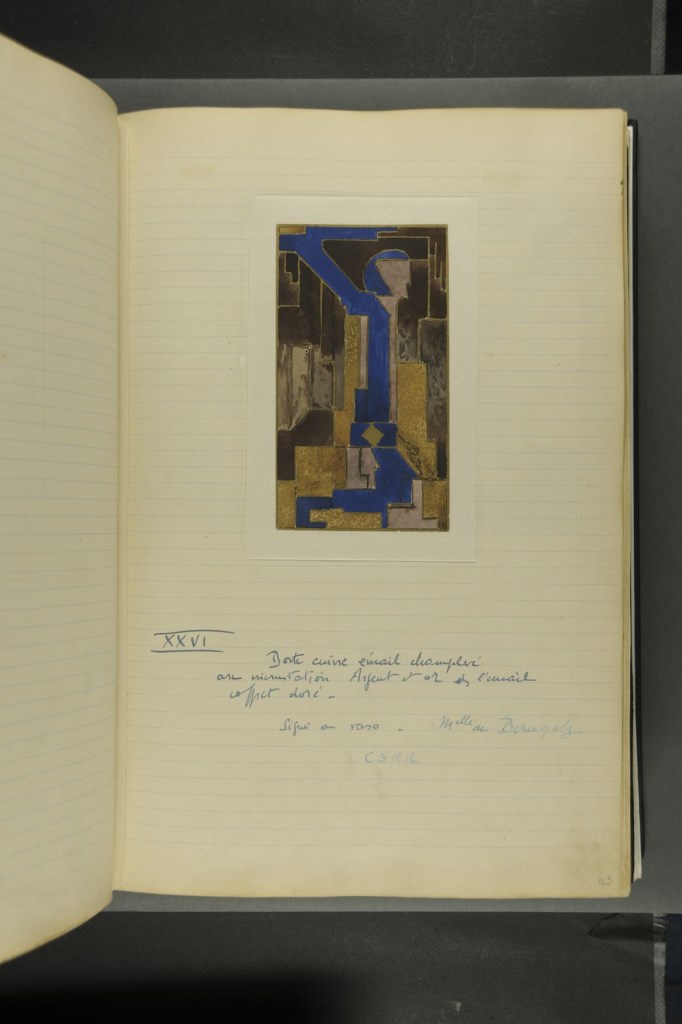 XXVI
Boite cuivre émail champlevé
avec incrustation Argent et or ds l'émail
coffret doré _
Signé au verso _ Melle de
123